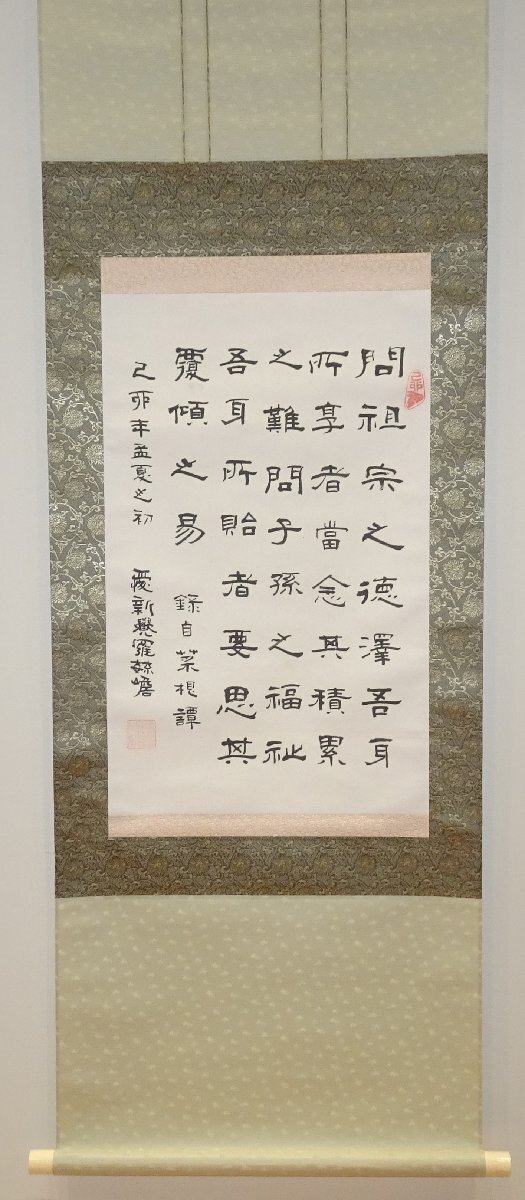 問祖宗之德澤吾身
所享者當念其積累
之難問子孫之福祉
吾身所貽者要思其
覆傾之易
錄自菜根譚
己卯年孟夏之初
愛新覺羅